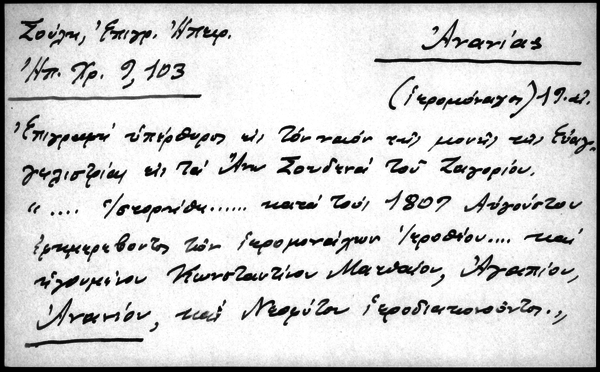 Σούλη, Ἐπιγρ. Ἠπειρ.
Ἠπ. Χρ. 9, 103
Ἀνανίας
(ἱερομόναχος) 19. αἰ.
Ἐπιγραφή ὑπέρθυρος εἰς τόν ναόν τῆς μονῆς τῆς Εὐαγ-
γελιστρίας εἰς τά Ἄνω Σουδενά τοῦ Ζαγορίου.
".... Ἱστορήθη...... κατά τούς 1807 Αὐγούστου
ἐφημερεβοντος τόν ἱερομονάχων Ἱεροθέου.... καί
ἡγουμένου Κωνσταντίνου Ματθαίου, Ἀγαπίου,
Ἀνανίου, καί Νεοφύτου ἱεροδιακονοῦντος.„